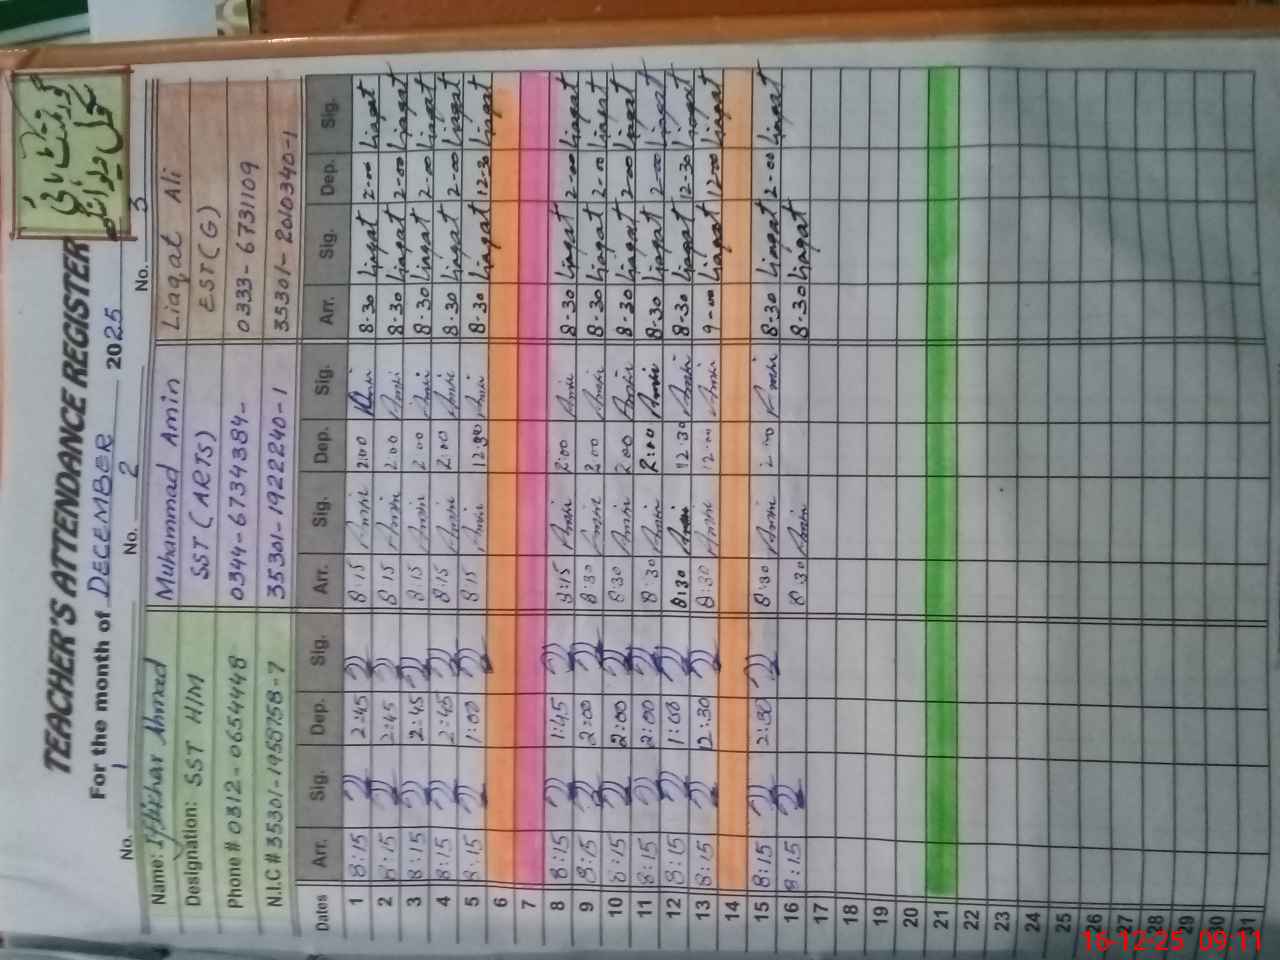 TEACHER'S ATTENDANCE REGISTER
For the month of DECEMBER 2025
No. 1 No. 2 No. 3
Name: Iftikhar Ahmed Muhammad Amin Liaqat Ali
Designation: SST H/M SST (ARTS) EST(G)
Phone # 0312-0654448 0344-6734384- 0333-6731109
N.I.C # 35301-1950758-7 35301-1922240-1 35301-2010340-1
Dates Arr. Sig. Dep. Sig. Arr. Sig. Dep. Sig. Arr. Sig. Dep. Sig.
1 8:15 2:45 8:15 Amin 2:00 Amin 8-30 Liaqat 2-00 Liaqat
2 8:15 2:45 8:15 Amin 2:00 Amin 8-30 Liaqat 2-00 Liaqat
3 8:15 2:45 8:15 Amin 2:00 Amin 8-30 Liaqat 2-00 Liaqat
4 8:15 2:45 8:15 Amin 2:00 Amin 8-30 Liaqat 2-00 Liaqat
5 8:15 1:00 8:15 Amin 12:30 Amin 8-30 Liaqat 12-30 Liaqat
6
7
8 8:15 1:45 8:15 Amin 2:00 Amin 8-30 Liaqat 2-00 Liaqat
9 8:15 2:00 8:30 Amin 2:00 Amin 8-30 Liaqat 2-00 Liaqat
10 8:15 2:00 8:30 Amin 2:00 Amin 8-30 Liaqat 2-00 Liaqat
11 8:15 2:00 8:30 Amin 2:00 Amin 8-30 Liaqat 2-00 Liaqat
12 8:15 1:00 8:30 Amin 12:30 Amin 8-30 Liaqat 12-30 Liaqat
13 8:15 12:30 8:30 Amin 12:00 Amin 9-00 Liaqat 12-00 Liaqat
14
15 8:15 2:30 8:30 Amin 2:00 Amin 8-30 Liaqat 2-00 Liaqat
16 8:15 8:30 Amin 8-30 Liaqat
17
18
19
20
21
22
23
24
25
26
27
28
29
30
31
16-12-25 09:11